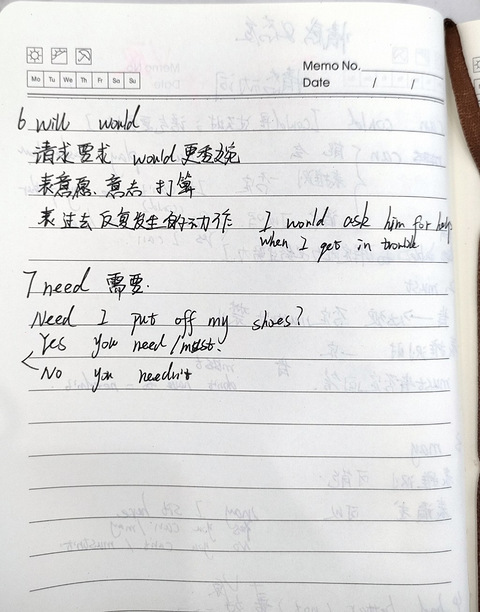 Memo No.
Mo Tu We Th Fr Sa Su
Date / /
6. will would
请求要求 would更委婉
表意愿.意志 打算
表过去反复发生的动作 I would ask him for help
when I get in trouble
7 need 需要.
Need I put off my shoes?
Yes you need/must.
No you needn't